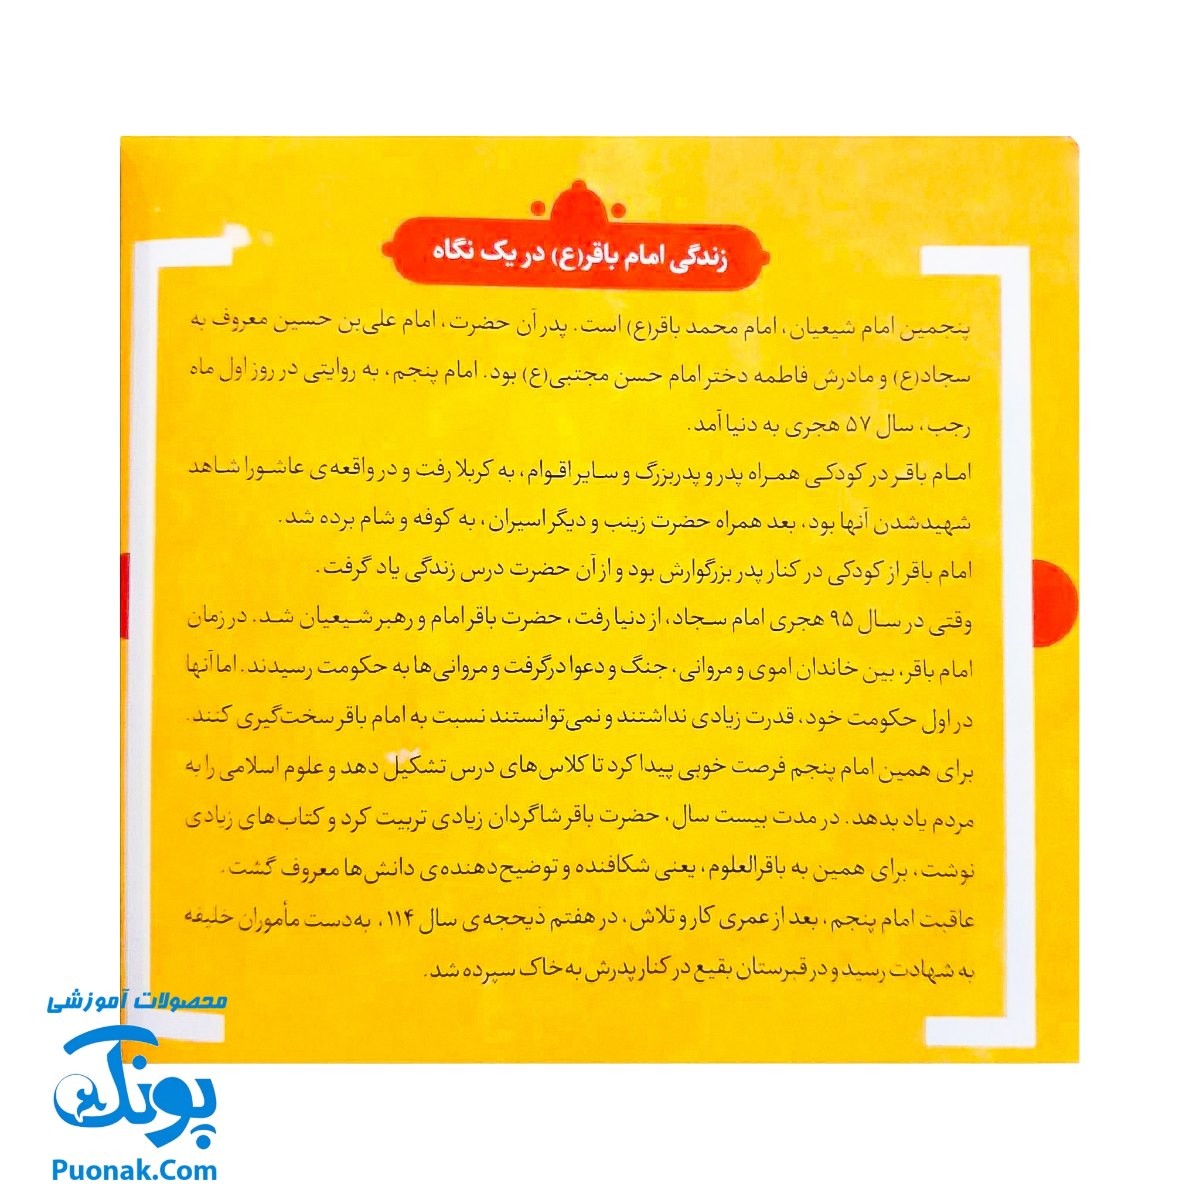 زندگی امام باقر(ع) در یک نگاه
پنجمین امام شیعیان، امام محمد باقر(ع) است. پدر آن حضرت، امام علی‌بن حسین معروف به
سجاد(ع) و مادرش فاطمه دختر امام حسن مجتبی(ع) بود. امام پنجم، به روایتی در روز اول ماه
رجب، سال ۵۷ هجری به دنیا آمد.
امام باقر در کودکی همراه پدر و پدربزرگ و سایر اقوام، به کربلا رفت و در واقعه‌ی عاشورا شاهد
شهیدشدن آنها بود، بعد همراه حضرت زینب و دیگر اسیران، به کوفه و شام برده شد.
امام باقر از کودکی در کنار پدر بزرگوارش بود و از آن حضرت درس زندگی یاد گرفت.
وقتی در سال ۹۵ هجری امام سجاد، از دنیا رفت، حضرت باقر امام و رهبر شیعیان شد. در زمان
امام باقر، بین خاندان اموی و مروانی، جنگ و دعوا درگرفت و مروانی‌ها به حکومت رسیدند. اما آنها
در اول حکومت خود، قدرت زیادی نداشتند و نمی‌توانستند نسبت به امام باقر سخت‌گیری کنند.
برای همین امام پنجم فرصت خوبی پیدا کرد تا کلاس‌های درس تشکیل دهد و علوم اسلامی را به
مردم یاد بدهد. در مدت بیست سال، حضرت باقر شاگردان زیادی تربیت کرد و کتاب‌های زیادی
نوشت، برای همین به باقرالعلوم، یعنی شکافنده و توضیح‌دهنده‌ی دانش‌ها معروف گشت.
عاقبت امام پنجم، بعد از عمری کار و تلاش، در هفتم ذیحجه‌ی سال ۱۱۴، به‌دست مأموران خلیفه
به شهادت رسید و در قبرستان بقیع در کنار پدرش به خاک سپرده شد.
محصولات آموزشی
پونک
Puonak.Com